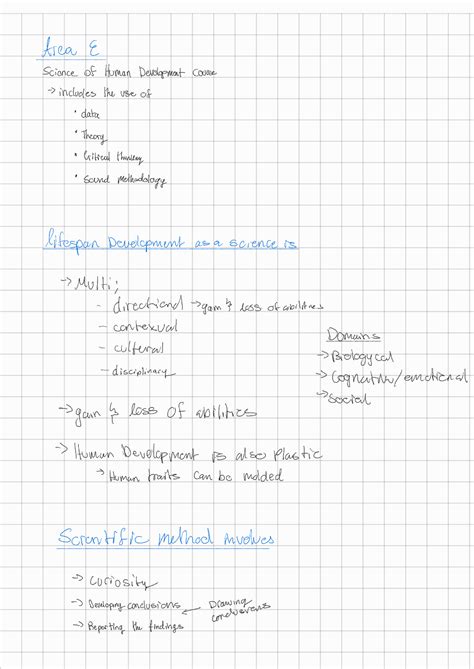 Area E
Science of Human Development Course
→ includes the use of
• data
• Theory
• Critical thinking
• Sound methodology
lifespan Development as a science is
→ Multi;
- directional → gain & loss of abilities
- contexual
- cultural
- disciplinary
Domains
→ Biologycal
→ Cognative/emotional
→ Social
→ gain & loss of abilities
→ Human Development is also Plastic
→ Human traits can be molded
Scientific method involves
→ curiosity
→ Developing conclusions ← Drawing conclusions
→ Reporting the findings